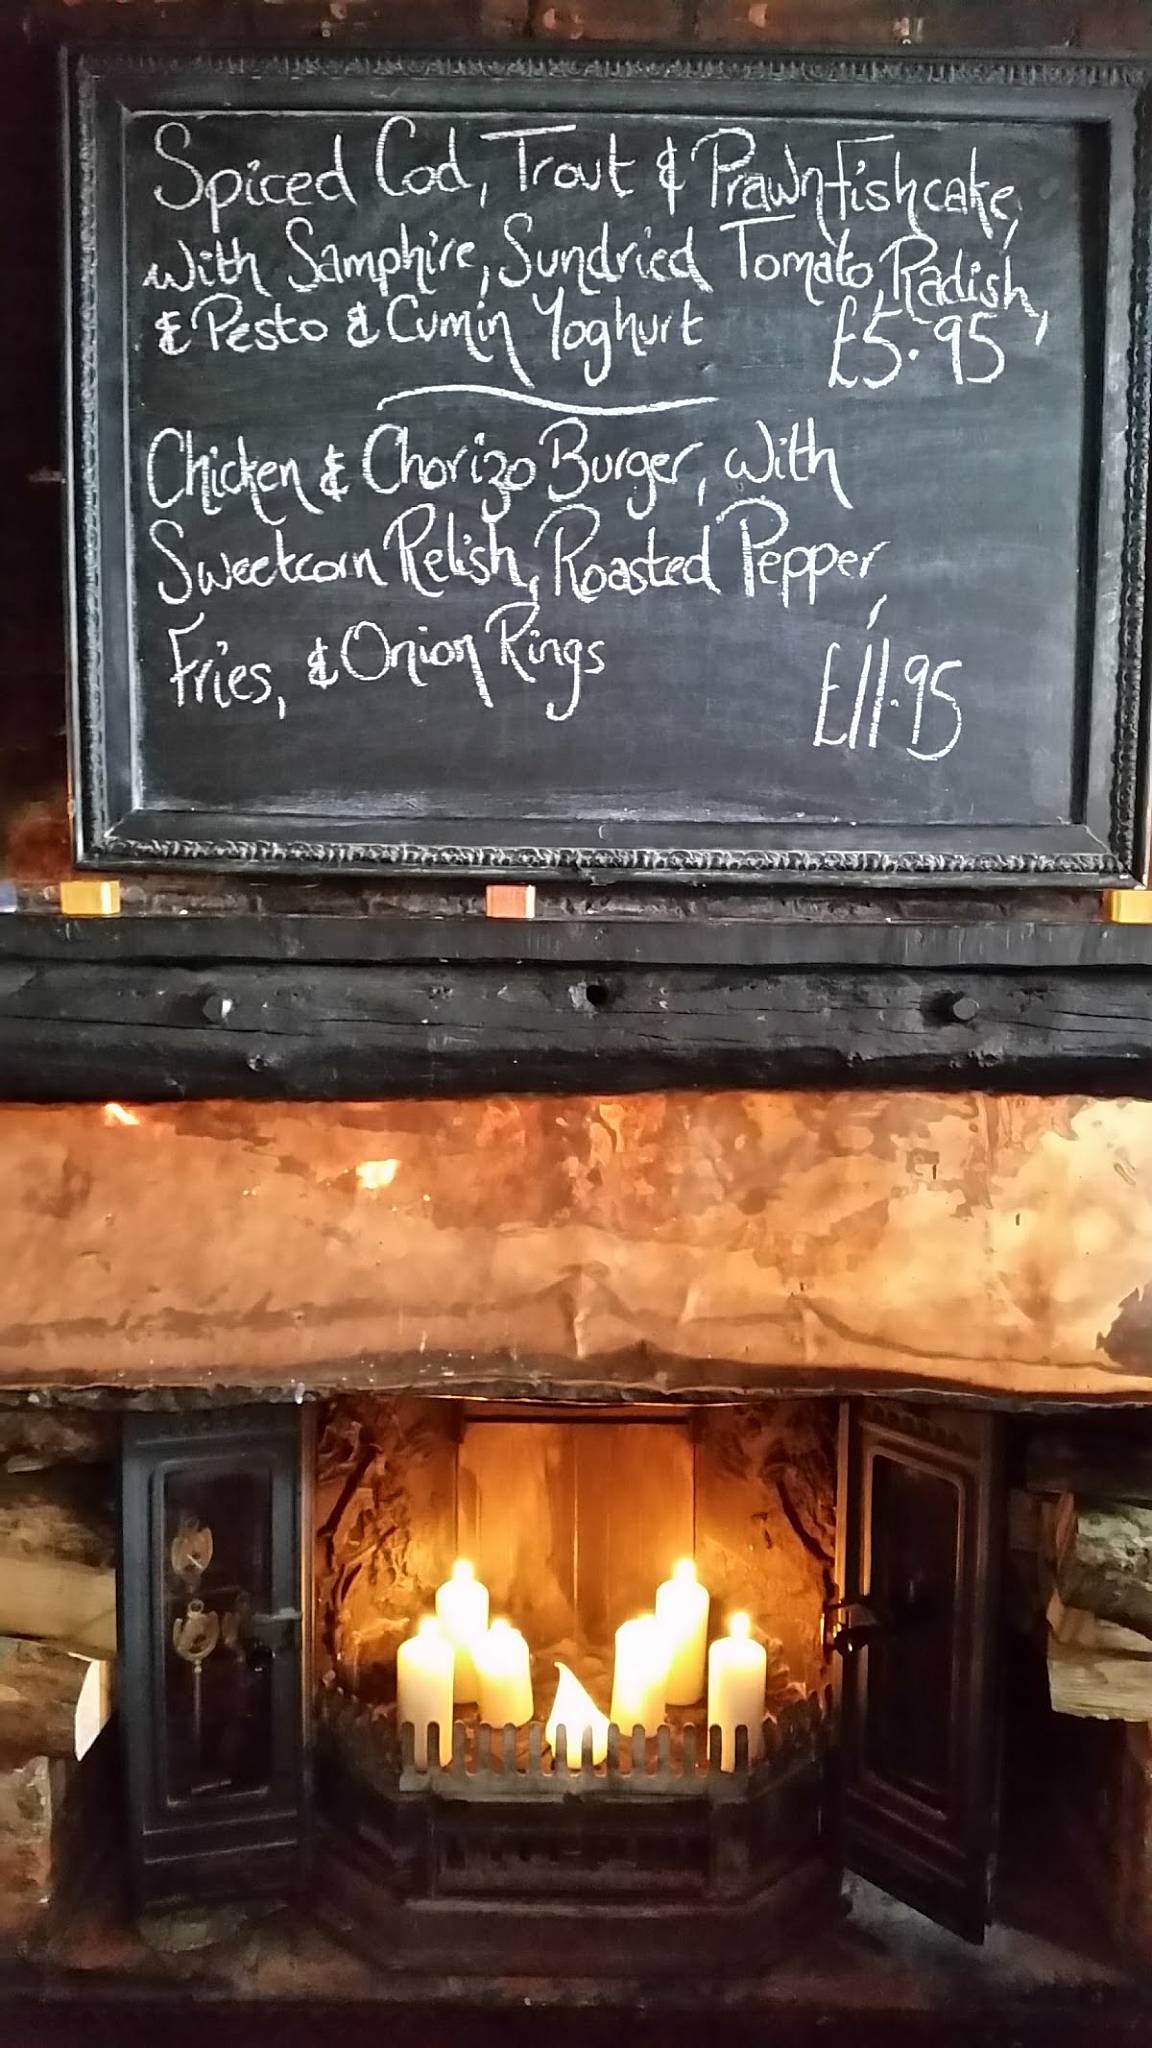 Spiced Cod, Trout & Prawn Fishcake,
with Samphire, Sundried Tomato, Radish,
& Pesto & Cumin Yoghurt £5.95
Chicken & Chorizo Burger, with
Sweetcorn Relish, Roasted Pepper,
Fries, & Onion Rings £11.95